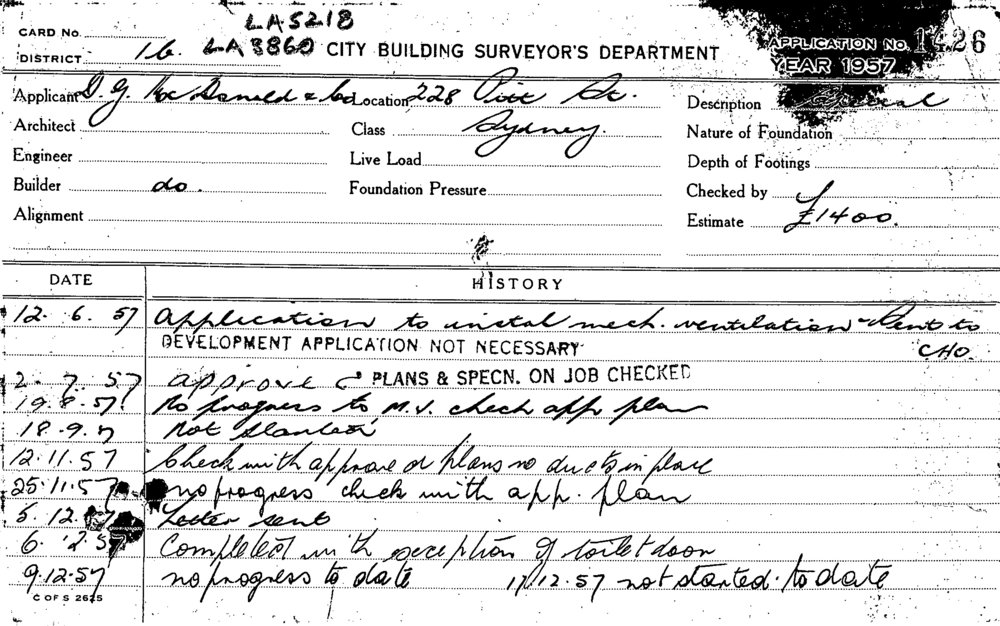 LA5218
CARD No.
DISTRICT 16. LA3860 CITY BUILDING SURVEYOR'S DEPARTMENT
APPLICATION NO. 1426
YEAR 1957
Applicant D. G. McDonald & Co Location 228 Pitt St. Description
Architect Class Sydney. Nature of Foundation
Engineer Live Load Depth of Footings
Builder do. Foundation Pressure Checked by
Alignment Estimate £1400.
DATE HISTORY
12. 6. 57 Application to instal mech. ventilation - Sent to
DEVELOPMENT APPLICATION NOT NECESSARY CHO.
2. 7. 57 approved PLANS & SPECN. ON JOB CHECKED
19.8.57. No progress to M.V. check app plan
18.9.7 Not started
12.11.57 Check with approved plans no ducts in place
25.11.57 no progress check with app. plan
5. 12. Letter sent
6. 12 57 Completed with exception of toilet door
9.12.57 no progress to date 17/12.57 not started to date
C OF S 2625